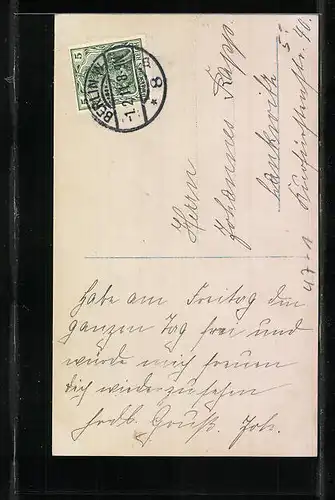 5 5
BERLIN W
-1.2.11.8-
* 8
Herrn
Johannes Rapp
Lankwitz
5
Kurfürstenstr. 40.
47-1
Habe am Freitag den
ganzen Tag frei und
würde mich freuen
Dich wiederzusehen
Hrdl. Gruß. Joh.